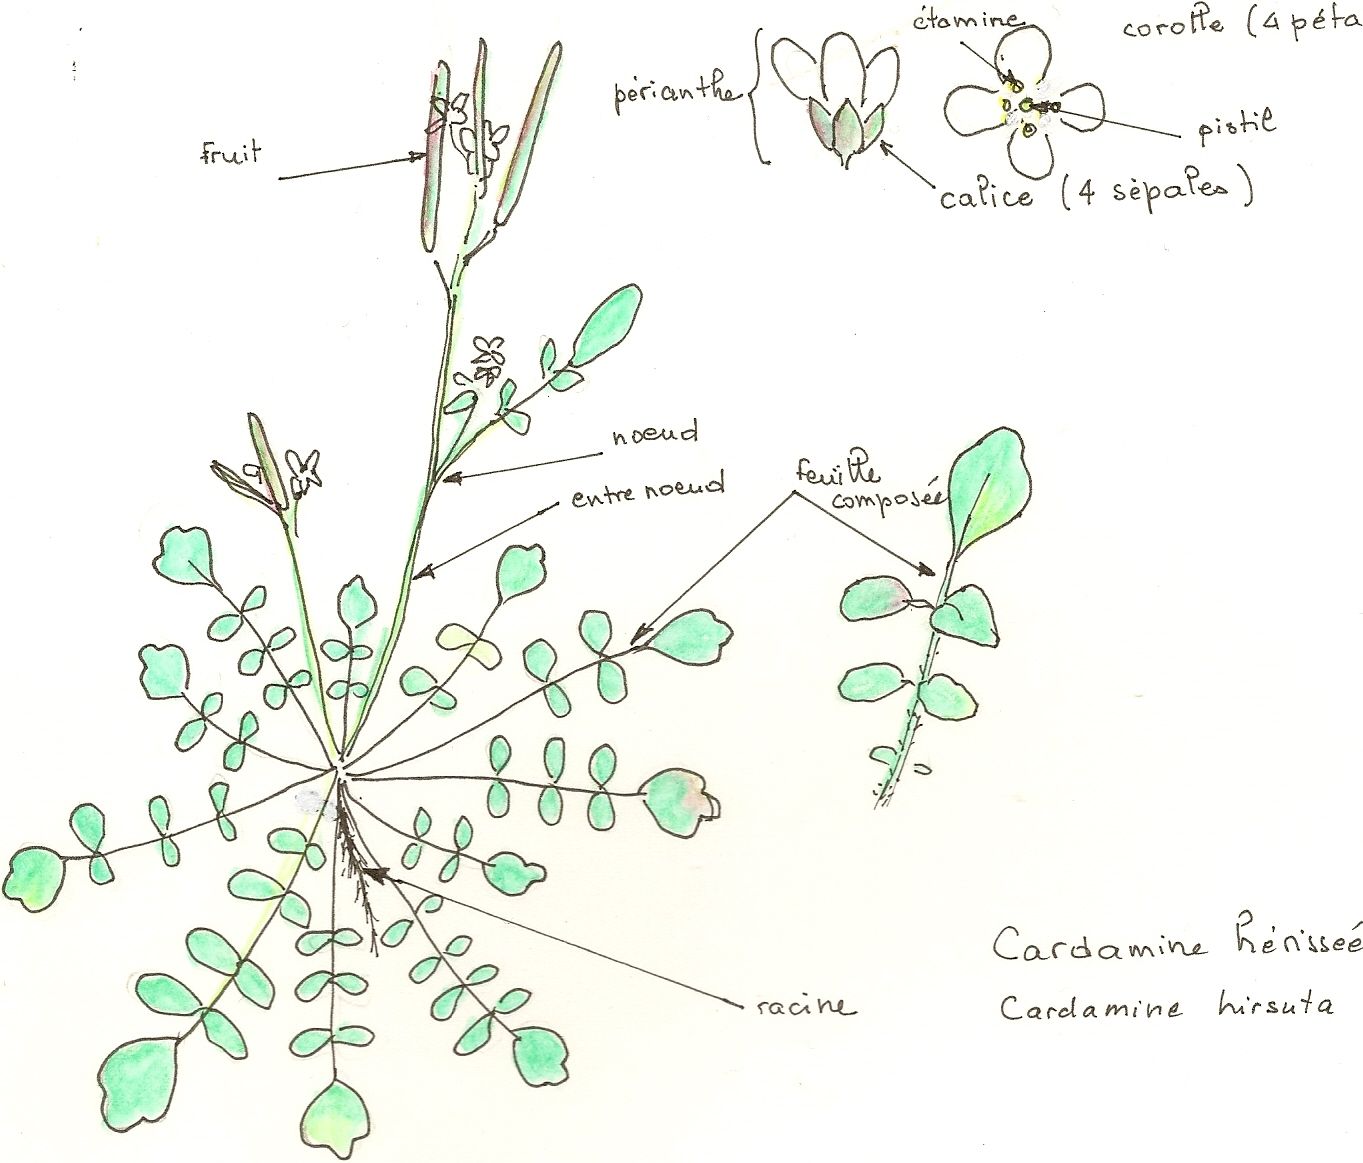 étamine
corolle (4 péta
périanthe
pistil
fruit
calice (4 sépales)
noeud
feuille
composée
entre noeud
Cardamine hérisseé
Cardamine hirsuta
racine